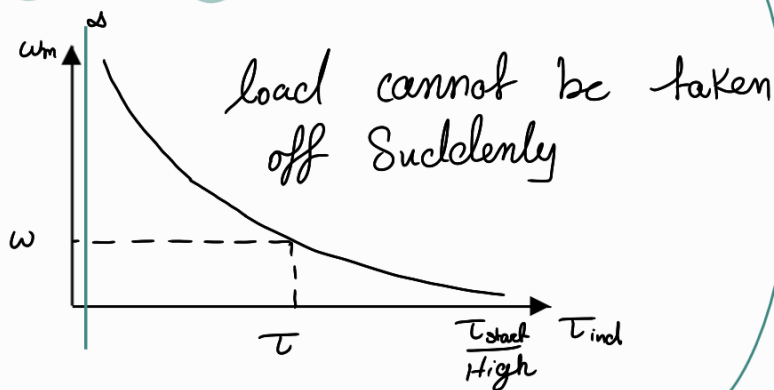 ∞
ωm
load cannot be taken
off Suddenly
ω
τ
τstart
High
τind